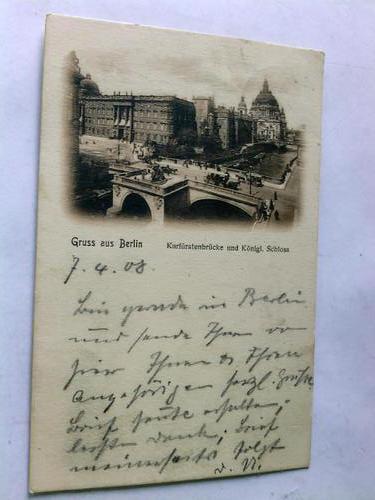 Gruss aus Berlin
Kurfürstenbrücke und Königl. Schloss
7.4.08.
Bin gerade in Berlin
und sende Ihnen von
hier Ihnen & Ihren
Angehörigen herzl. Grüße.
Brief heute erhalten,
besten Dank, Brief
meinerseits folgt
d. U.